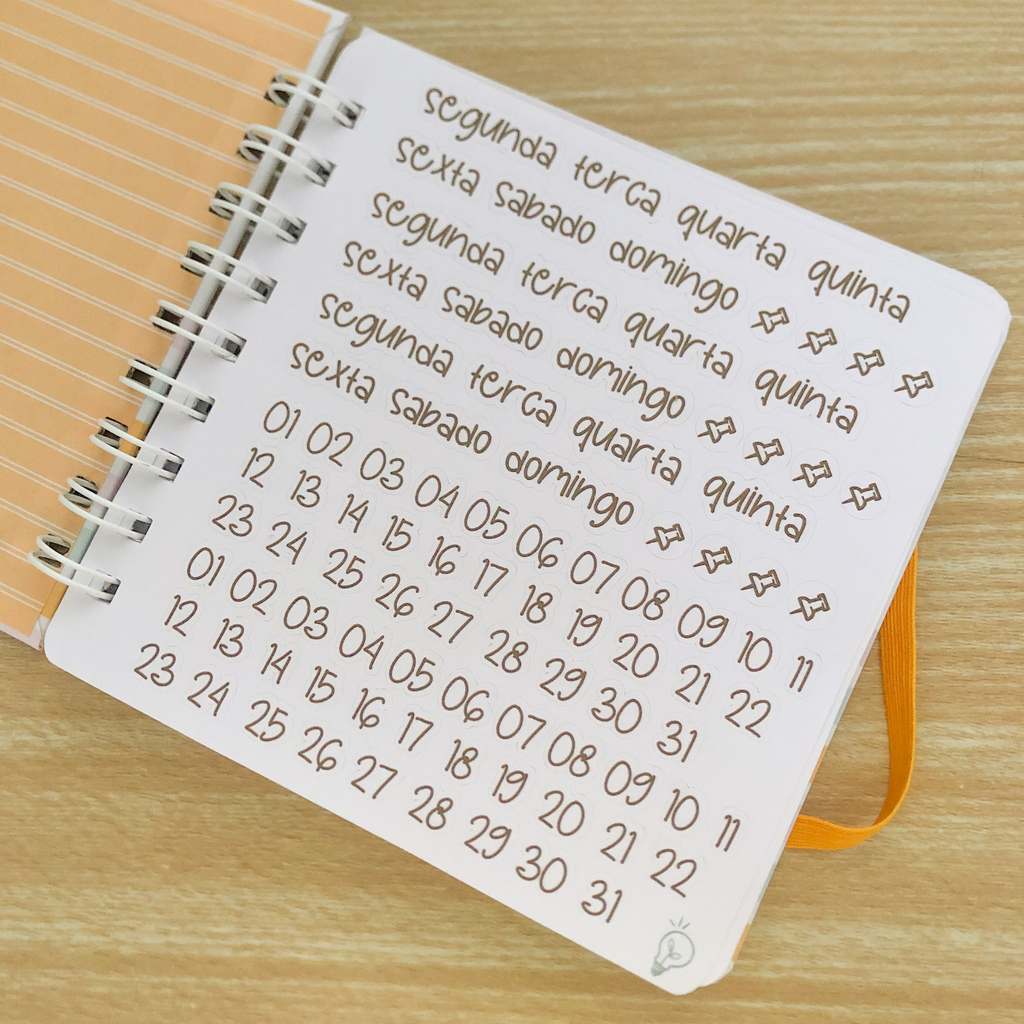 segunda terca quarta quinta
sexta sabado domingo
segunda terca quarta quinta
sexta sabado domingo
segunda terca quarta quinta
sexta sabado domingo
01 02 03 04 05 06 07 08 09 10 11
12 13 14 15 16 17 18 19 20 21 22
23 24 25 26 27 28 29 30 31
01 02 03 04 05 06 07 08 09 10 11
12 13 14 15 16 17 18 19 20 21 22
23 24 25 26 27 28 29 30 31